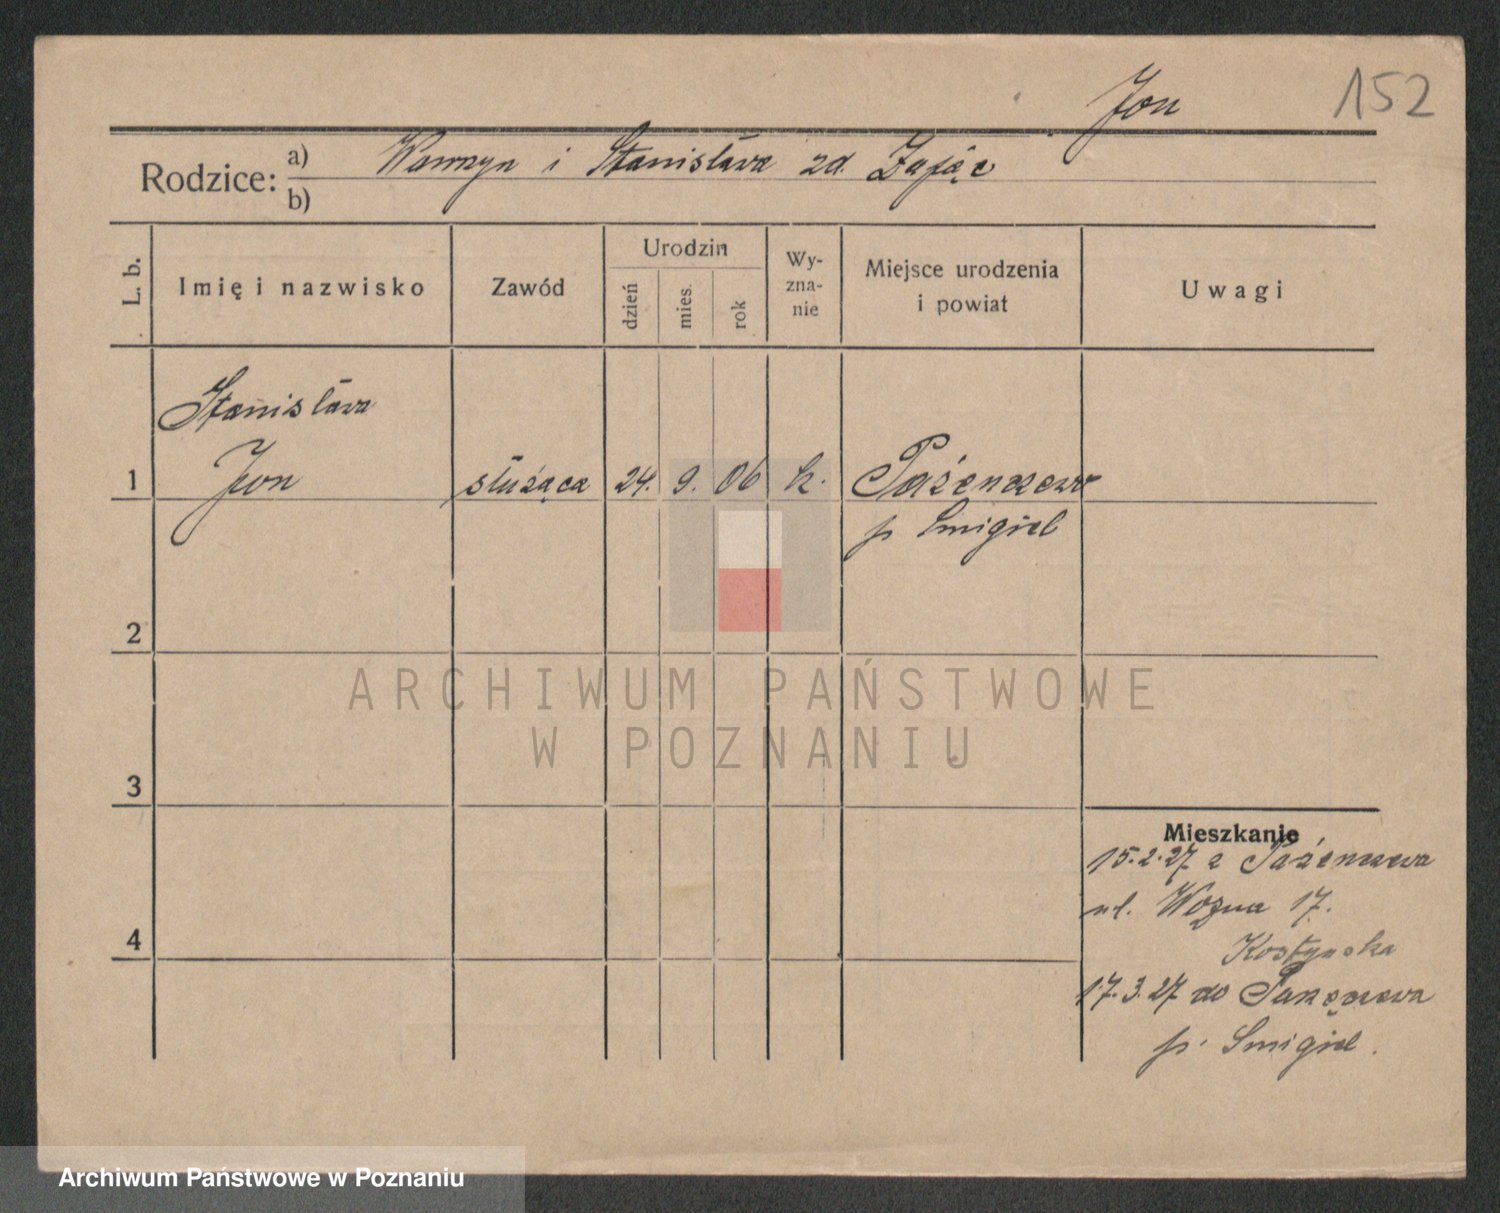 Jon
152
Rodzice:
a) Wawrzyn i Stanisława zd. Zając
b)
L. b.
Imię i nazwisko
Zawód
Urodzin
dzień
mies.
rok
Wy-
zna-
nie
Miejsce urodzenia
i powiat
Uwagi
Stanisława
1 Jon służąca 24. 9. 06 k.
p Smigiel
2
ARCHIWUM PAŃSTWOWE
W POZNANIU
3
Mieszkanie
15.2.27 z
ul. Woźna 17.
4
17.3.27 do
p. Smigiel.
Archiwum Państwowe w Poznaniu